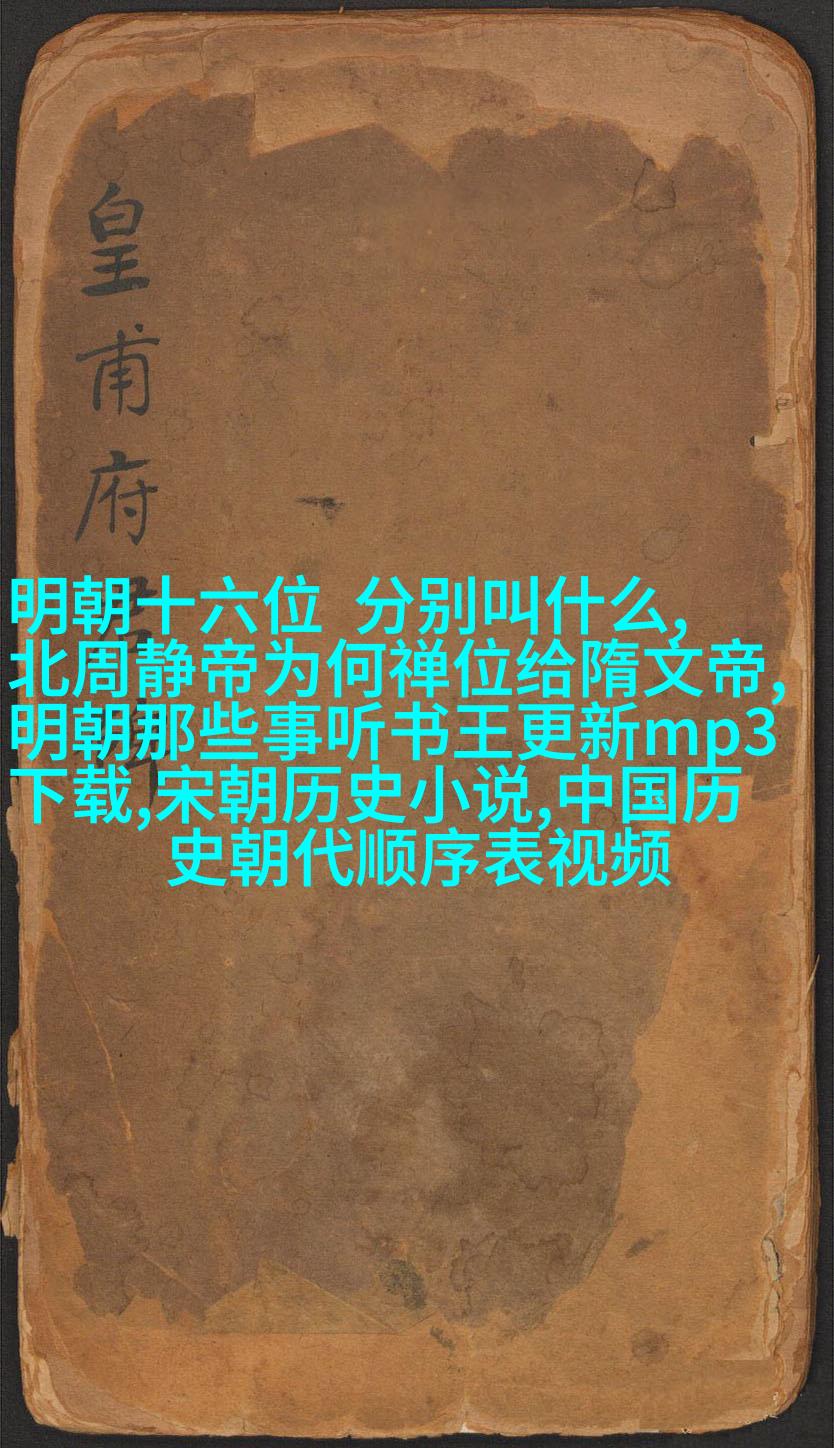 皇甫府君碑
明朝十六位 分别叫什么,
北周静帝为何禅位给隋文帝,
明朝那些事听书王更新mp3
下载,宋朝历史小说,中国历
史朝代顺序表视频